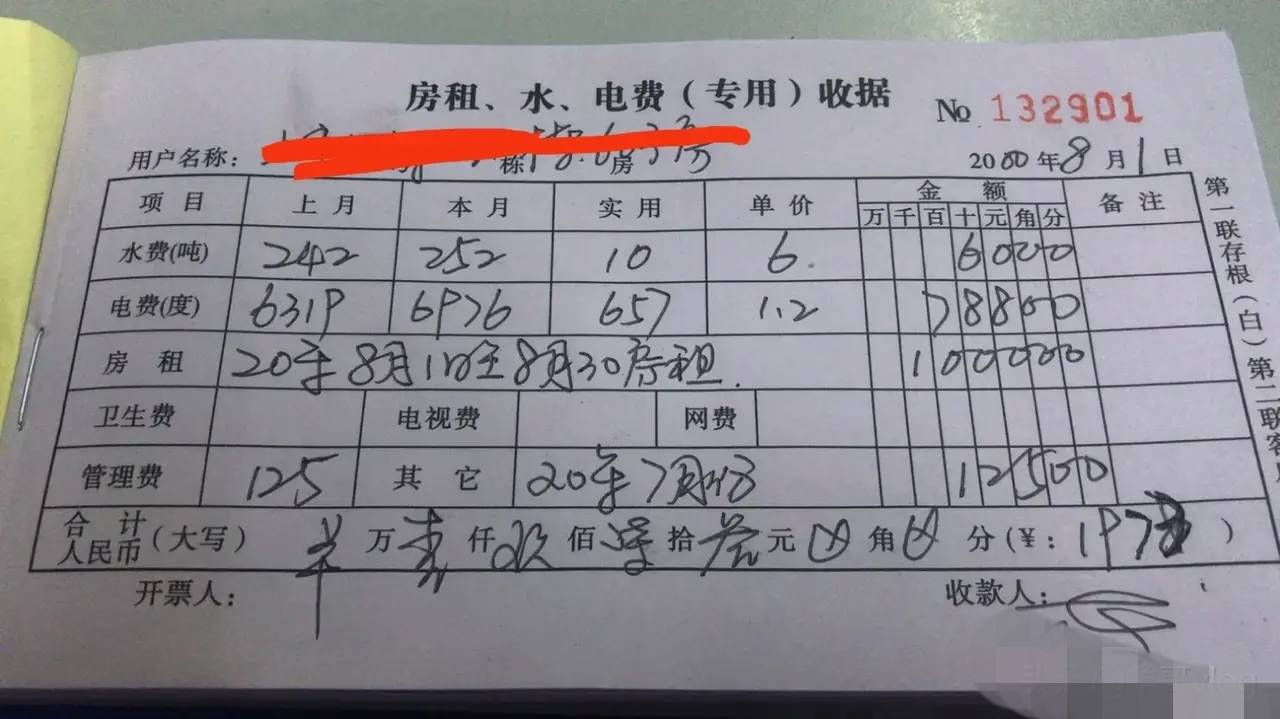 房租、水、电费（专用）收据 № 132901
用户名称： 栋 房 2000年8月1日
项目 上月 本月 实用 单价 金额 备注
万 千 百 十 元 角 分
水费(吨) 242 252 10 6. 6000
电费(度) 6319 6976 657 1.2 78800
房租 20年8月1日至8月30房租. 100000
卫生费 电视费 网费
管理费 125 其它 20年7月份 12500
合计人民币（大写） 万 仟 玖 佰 拾 叁 元 角 分（¥：197 ）
开票人： 收款人：
第一联存根（白）第二联客